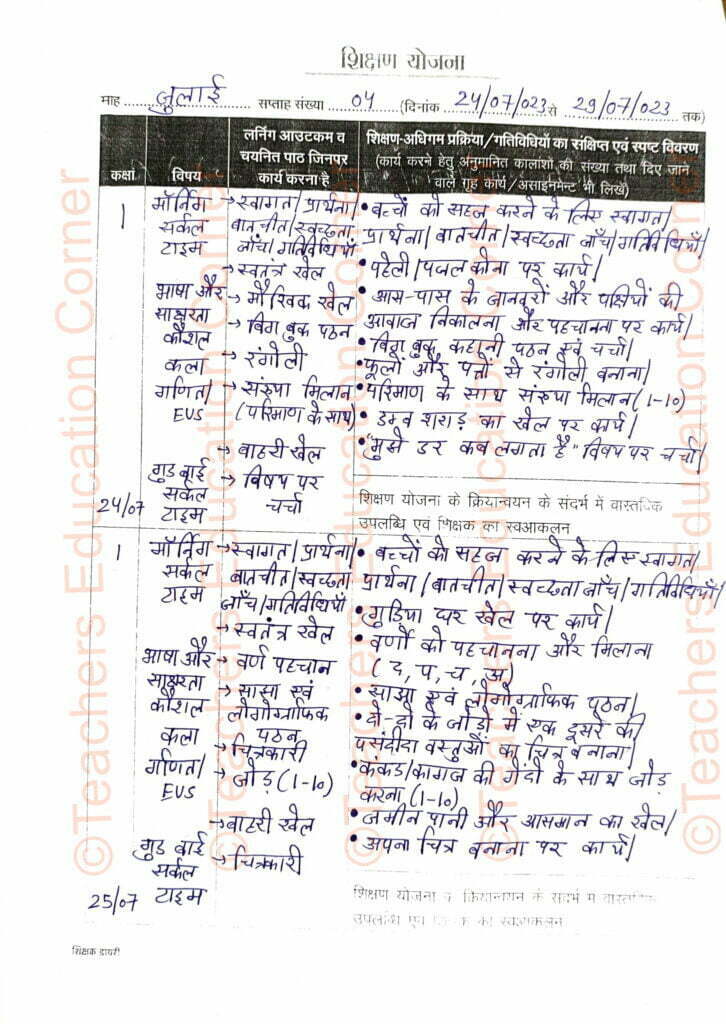 शिक्षण योजना
माह जुलाई सप्ताह संख्या 04 (दिनांक 24/07/023 से 29/07/023 तक)
कक्षा विषय लर्निंग आउटकम व चयनित पाठ जिनपर कार्य करना है शिक्षण-अधिगम प्रक्रिया/गतिविधियों का संक्षिप्त एवं स्पष्ट विवरण
(कार्य करने हेतु अनुमानित कालांशों की संख्या तथा दिए जाने
वाले गृह कार्य/असाइनमेन्ट भी लिखें)
1 मॉर्निंग →स्वागत/प्रार्थना/ • बच्चों को सहज करने के लिए स्वागत/
सर्कल बातचीत/स्वच्छता प्रार्थना/बातचीत/स्वच्छता जाँच/गतिविधियाँ/
टाइम जाँच/गतिविधियाँ
→स्वतंत्र खेल • पहेली/पजल कोना पर कार्य/
भाषा और → मौखिक खेल • आस-पास के जानवरों और पक्षियों की
साक्षरता → बिग बुक पठन आवाज निकालना और पहचानना पर कार्य/
कौशल • बिग बुक कहानी पठन एवं चर्चा/
कला → रंगोली • फूलों और पत्तों से रंगोली बनाना/
गणित/ → संख्या मिलान • परिमाण के साथ संख्या मिलान (1-10)
EVS (परिमाण के साथ) • डम्ब शराड़ का खेल पर कार्य/
→ बाहरी खेल • "मुझे डर कब लगता है" विषय पर चर्चा/
गुड बाई → विषय पर
सर्कल चर्चा शिक्षण योजना के क्रियान्वयन के संदर्भ में वास्तविक
24/07 टाइम उपलब्धि एवं शिक्षक का स्वआकलन
1 मॉर्निंग →स्वागत/प्रार्थना/ • बच्चों को सहज करने के लिए स्वागत/
सर्कल बातचीत/स्वच्छता प्रार्थना/बातचीत/स्वच्छता जाँच/गतिविधियाँ/
टाइम जाँच/गतिविधियाँ • गुडिया घर खेल पर कार्य/
→स्वतंत्र खेल • वर्णों को पहचानना और मिलाना
भाषा और → वर्ण पहचान (द, प, च, अ)
साक्षरता → साझा एवं • साझा एवं लोगोग्राफिक पठन/
कौशल लोगोग्राफिक • दो-दो के जोड़ो में एक दूसरे की
कला पठन पसंदीदा वस्तुओं का चित्र बनाना/
→ चित्रकारी
गणित/ → जोड़ (1-10) • कंकड/कागज की गेंदों के साथ जोड़
EVS करना (1-10)
→बाहरी खेल • जमीन पानी और आसमान का खेल/
गुड बाई → चित्रकारी • अपना चित्र बनाना पर कार्य/
सर्कल शिक्षण योजना के क्रियान्वयन के संदर्भ में वास्तविक
25/07 टाइम उपलब्धि एवं शिक्षक का स्वआकलन
शिक्षक डायरी
©Teachers Education Corner
©Teachers Education Corner
©Teachers Education Corner
©Teachers Education Corner
©Teachers Education Corner